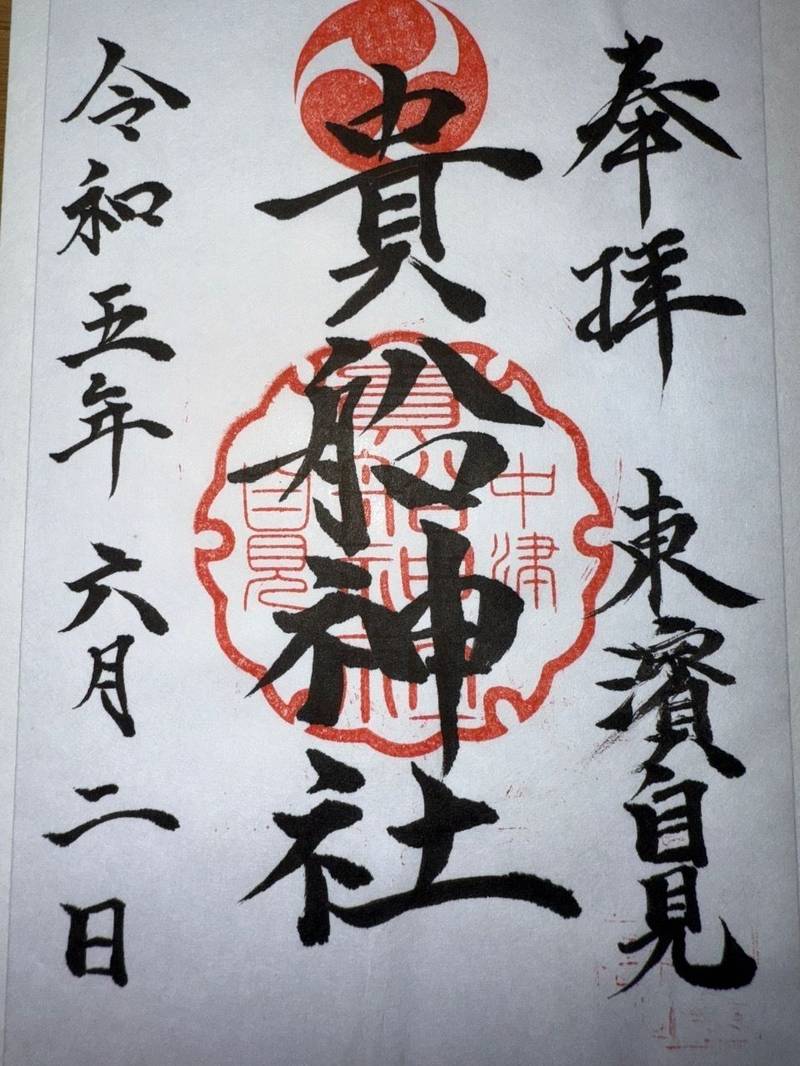 奉拝
東濱自見
貴船神社
中津
貴船神社
自見
令和五年六月二日